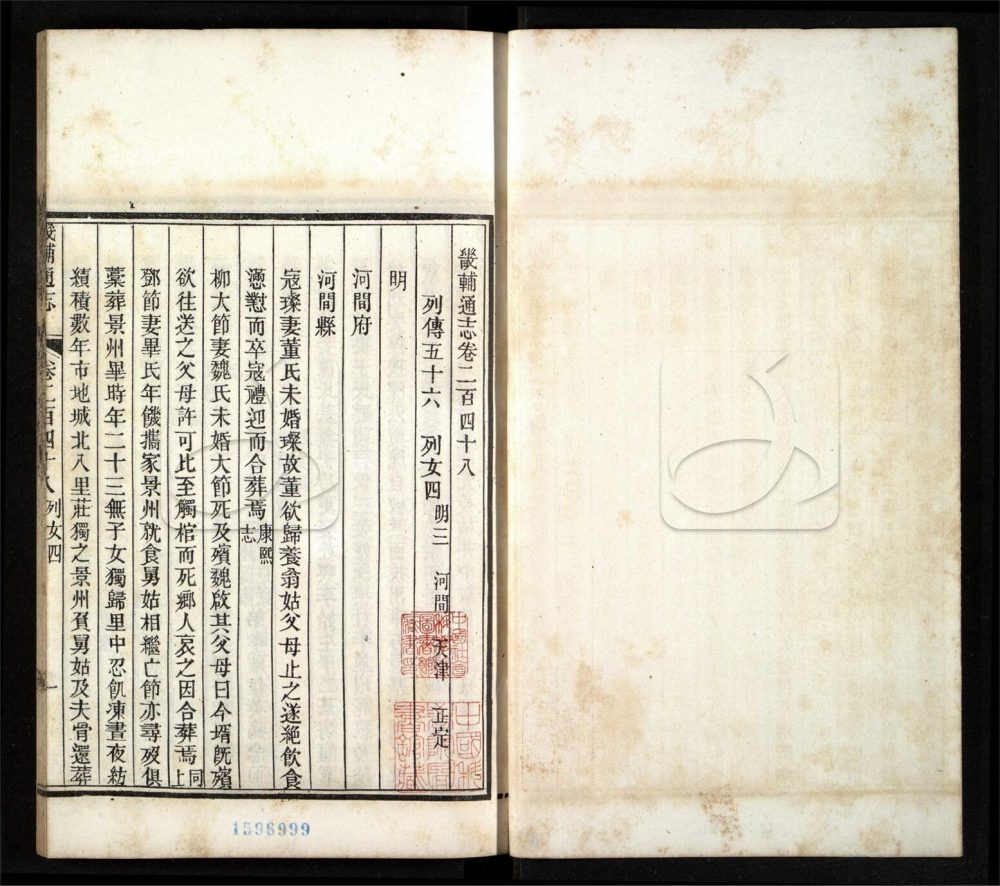 畿輔通志卷二百四十八
列傳五十六 列女四 明三 河間 天津 正定
明
河間府
河間縣
寇璨妻董氏未婚璨故董欲歸養翁姑父母止之遂絶飲食
懑懟而卒寇禮迎而合葬焉康熙志
柳大節妻魏氏未婚大節死及殯魏啟其父母曰今壻旣殯
欲往送之父母許可比至觸棺而死鄉人哀之因合葬焉同上
鄧節妻畢氏年饑攜家景州就食舅姑相繼亡節亦尋歿俱
藁葬景州畢時年二十三無子女獨歸里中忍飢凍晝夜紡
績積數年市地城北八里莊獨之景州負舅姑及夫骨還葬
畿輔通志
卷二百四十八 列女四
一
1596999